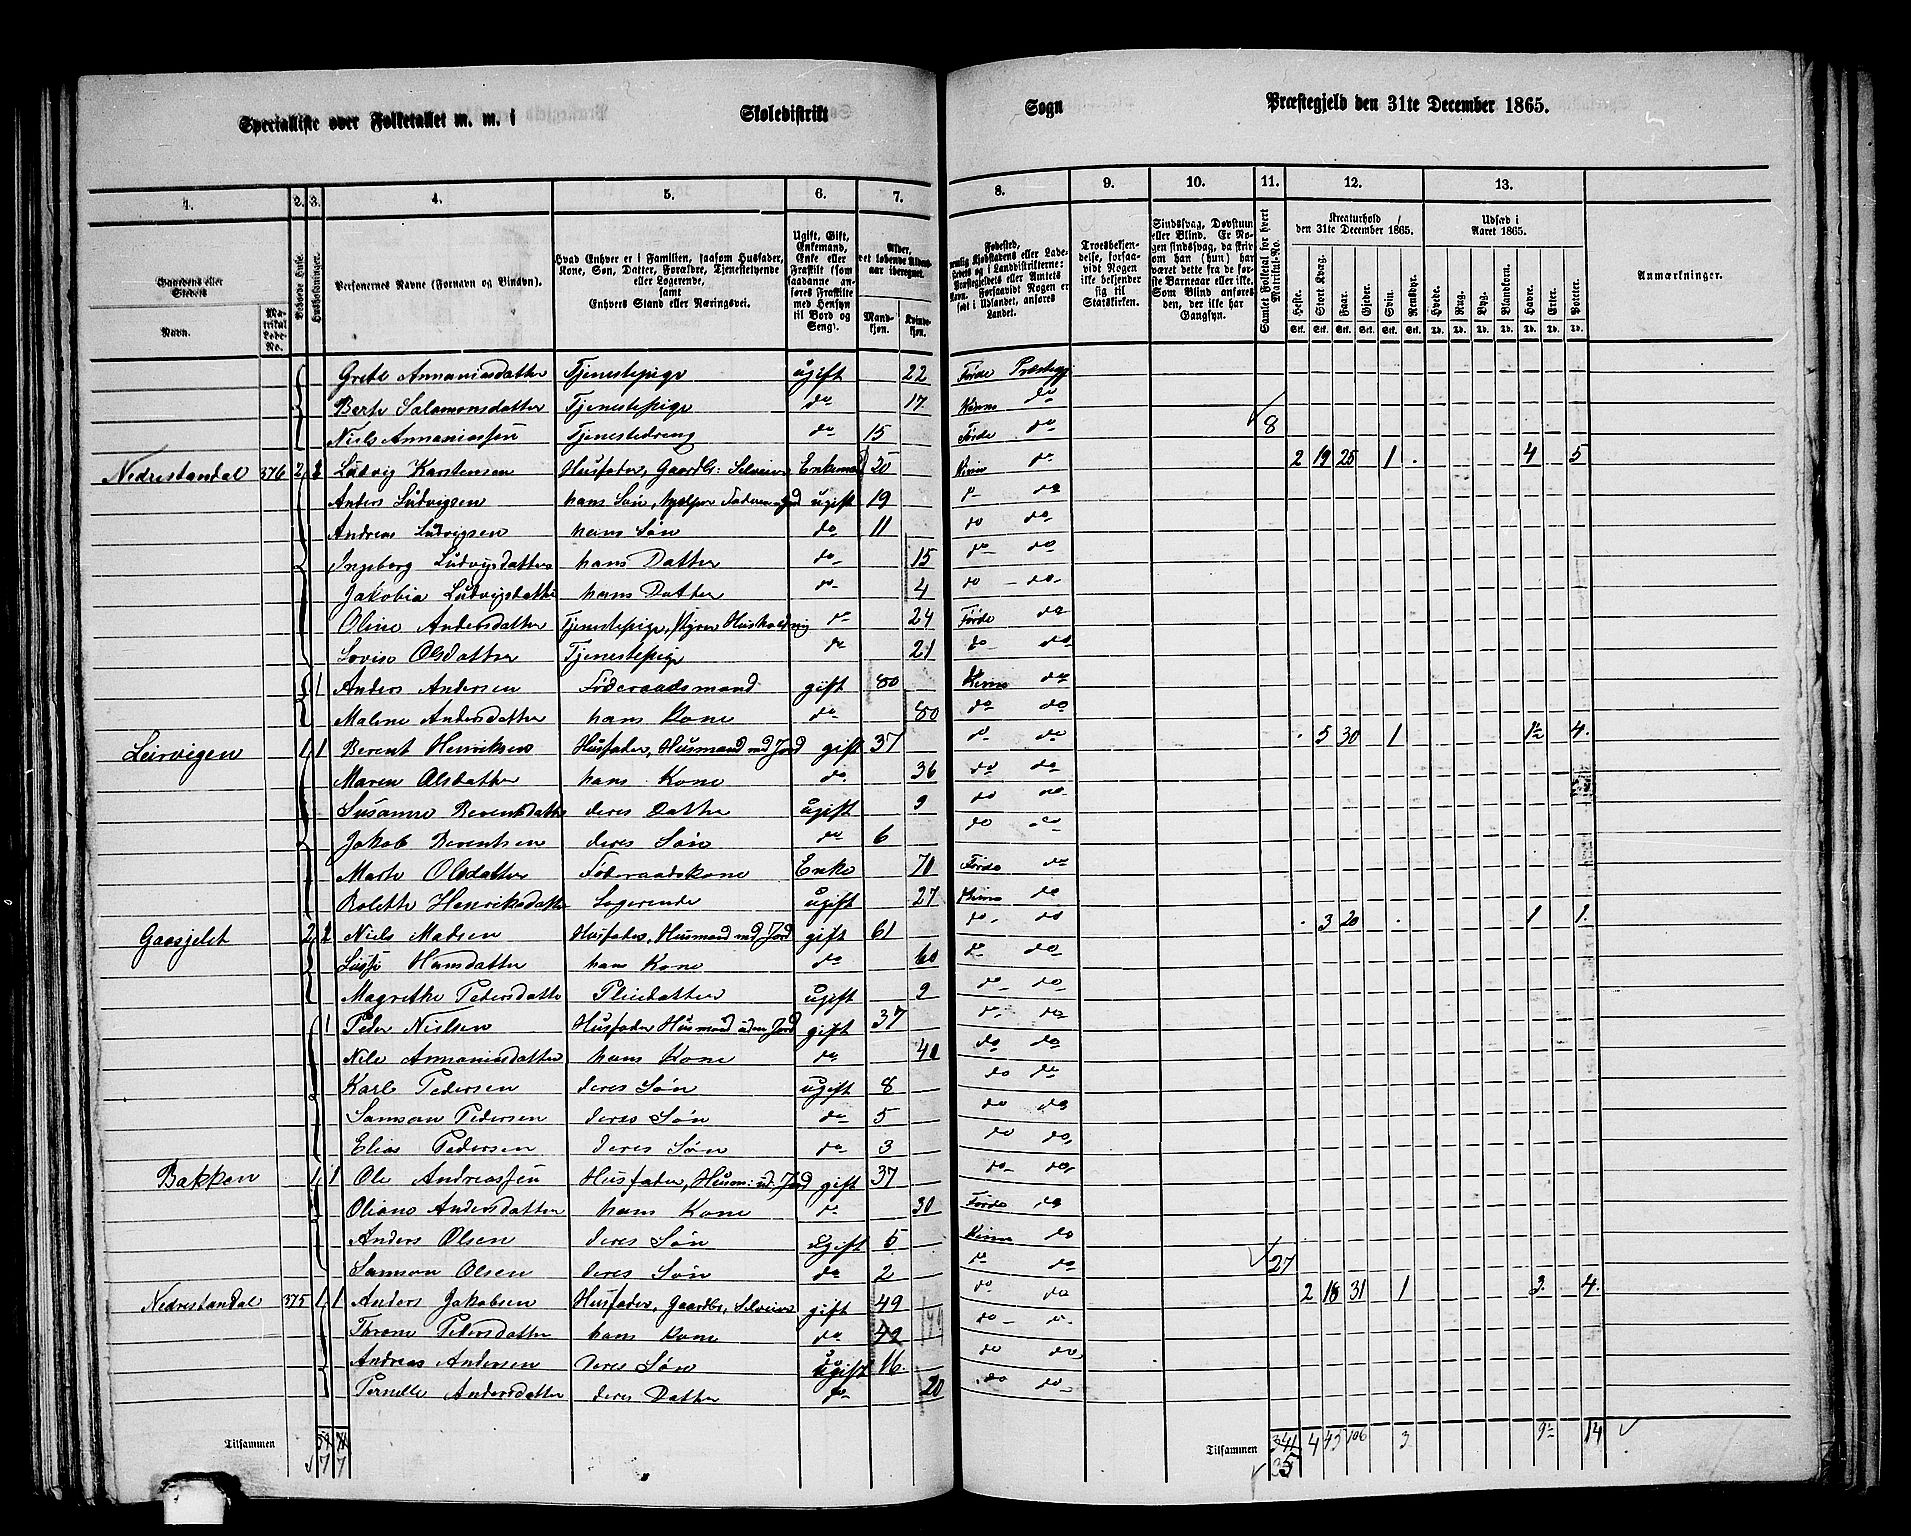 Specialliste over Folketallet m. m. i Skoledistrikt Sogn Præstegjeld den 31te December 1865.
1. 2. 3. 4. 5. 6. 7. 8. 9. 10. 11. 12. 13.
Gaardens eller Stedets
Navn.
Matrikul Løbe-No.
Beboede Huse.
Husholdninger.
Personernes Navne (Fornavn og Tilnavn).
Hvad Enhver er i Familien, saasom Husfader, Kone, Søn, Datter, Forældre, Tjenestetyende eller Logerende, samt Enhvers Stand eller Næringsvei.
Ugift, Gift, Enkemand, Enke eller Fraskilt (som saadanne anføres Fraskilte med Hensyn til Bord og Seng).
Alder, det løbende Aldersaar iberegnet.
Mandkjøn. Kvindekjøn.
Troesbekjendelse, forsaavidt Nogen ikke bekjender sig til Statskirken.
Sindssvag, Døvstum eller Blind.
Samlet Folketal for hvert Matrikul-No.
Kreaturhold den 31te December 1865.
Heste. Stort Kvæg. Faar. Gjeder. Svin. Rensdyr.
Udsæd i Aaret 1865.
Hvede. Rug. Byg. Blandkorn. Havre. Erter. Poteter.
Anmærkninger.
Grete Annaniasdatter Tjenestepige ugift 22 Førde Præstegj
Berte Salamonsdatter Tjenestepige do 17 Kinn do
Niels Annaniassen Tjenestedreng do 15 Førde do 8
Nedrestandal 376 2 Ludvig Karstensen Husfader, Gaardb: Selveier Enkemand 50 Kinn do 2 19 25 1 4 5
Anders Ludvigsen hans Søn, hjelper Faderen ugift 19 do do
Andreas Ludvigsen hans Søn do 11 do do
Ingeborg Ludvigsdatter hans Datter do 15 do do
Jakobia Ludvigsdatter hans Datter do 4 do do
Oline Andersdatter Tjenestepige, styrer Husholdning do 24 Førde do
Lovise Olsdatter Tjenestepige do 21 do do
1 Anders Andersen Føderaadsmand gift 80 Kinn do
Malene Andersdatter hans Kone do 80 do do
Leirvigen 1 1 Berent Henriksen Husfader, Husmand med Jord gift 37 do do 5 30 1 1½ 4
Maren Olsdatter hans Kone do 36 do do
Susanne Berentsdatter deres Datter ugift 9 do do
Jakob Berentsen deres Søn do 6 do do
Marte Olsdatter Føderaadskone Enke 70 Førde do
Bolette Henriksdatter Logerende ugift 27 Kinn do
Gaasjelet 2 Niels Madsen Husfader, Husmand med Jord gift 61 do do 3 20 1 1
Hansdatter hans Kone do 60 do do
Magrethe Pedersdatter Pleiedatter ugift 9 do do
1 Peder Nielsen Husfader Husmand uden Jord gift 37 do do
Nile Annaniasdatter hans Kone do 40 do do
Karl Pedersen deres Søn ugift 8 do do
Samson Pedersen deres Søn do 5 do do
Elias Pedersen deres Søn do 3 do do
Bakken 1 1 Ole Andreassen Husfader, Husm: u: Jord gift 37 do do
Oliane Andersdatter hans Kone do 30 Førde do
Anders Olsen deres Søn ugift 5 Kinn do
Samson Olsen deres Søn do 2 do do 27
Nedrestandal 375 1 1 Anders Jakobsen Husfader, Gaardb, Selveier gift 49 do do 2 18 31 1 3 4
Pedersdatter hans Kone do 49 do do
Andreas Andersen deres Søn ugift 16 do do
Pernille Andersdatter deres Datter do 20 do do
Tilsammen 7 7 Tilsammen 35 4 45 106 3 9½ 14